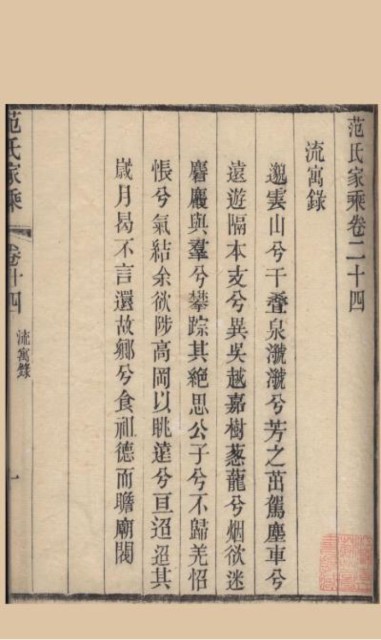 范氏家乘卷二十四
流寓錄
邈雲山兮千疊泉濺濺兮芳之茁駕塵車兮
遠遊隔本支兮異吳越嘉樹蔥蘢兮烟欲迷
麏與羣兮攀踪其絕思公子兮不歸羌怊
悵兮氣結余欲陟高岡以眺遠兮亘迢迢其
歲月曷不言還故鄉兮食祖德而瞻廟閥
范氏家乘
卷廿四
流寓錄
一